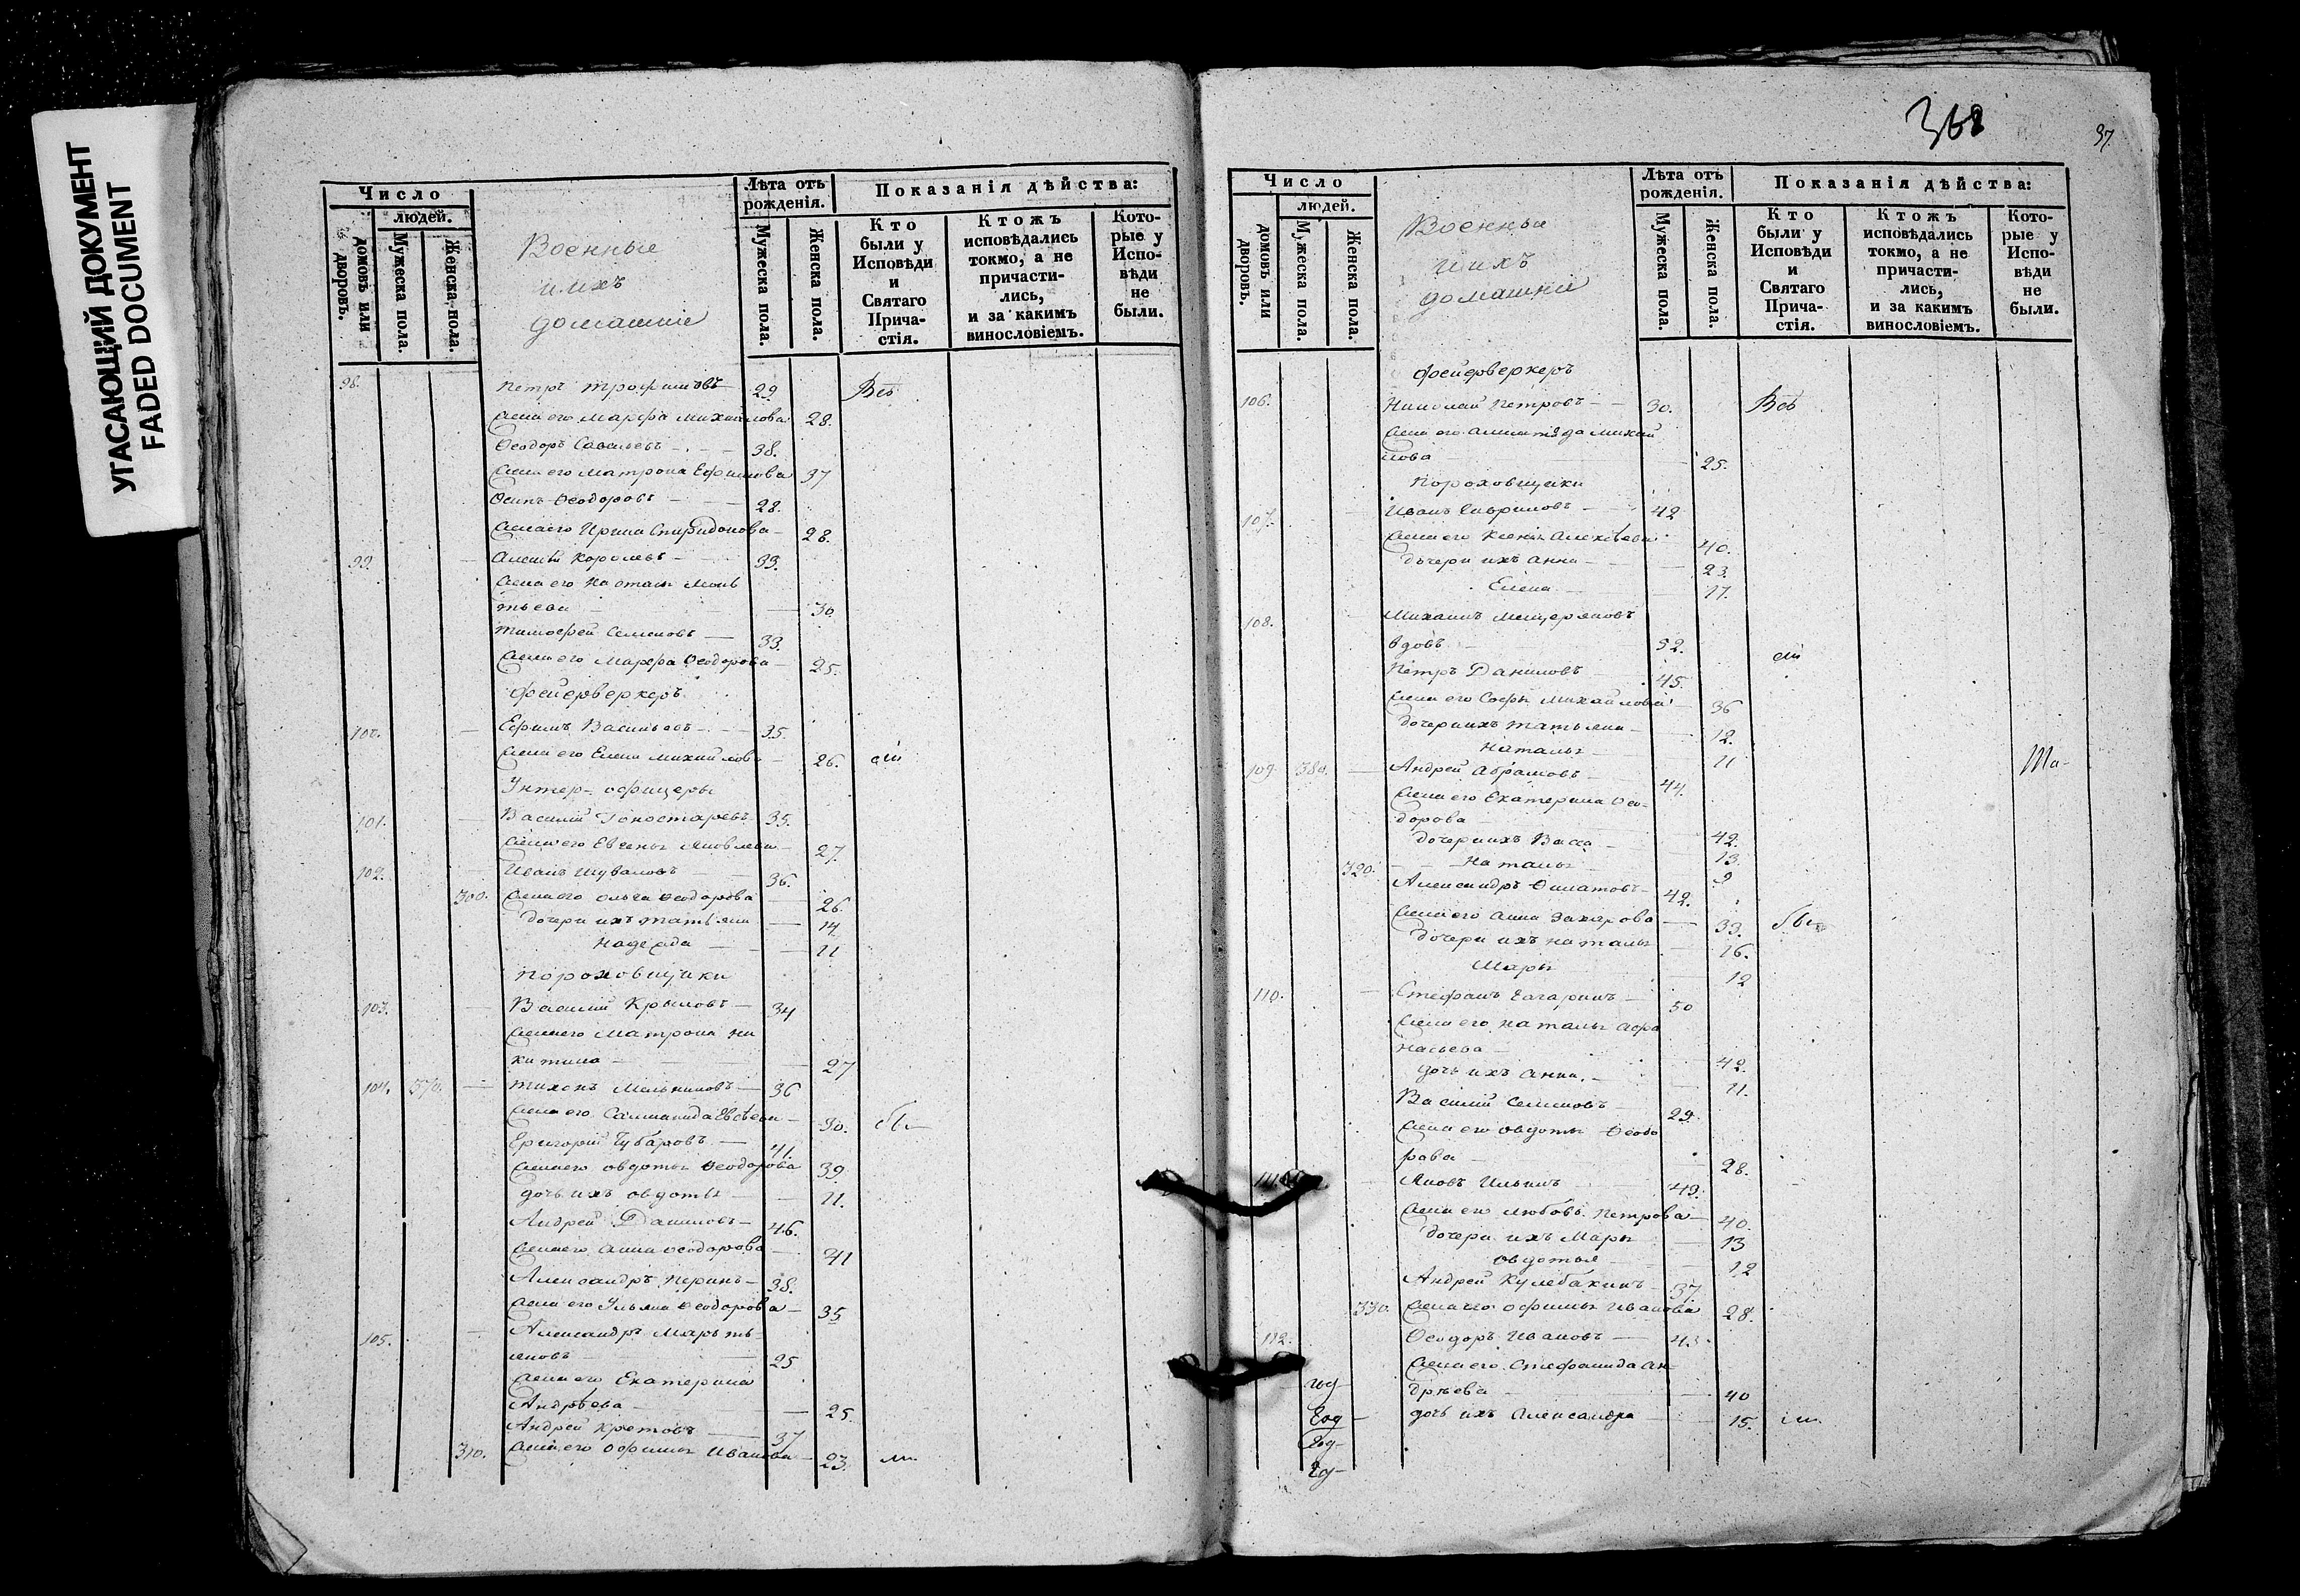 УГАСАЮЩИЙ ДОКУМЕНТ
FADED DOCUMENT
Число
людей.
домовъ или дворовъ.
Мужеска пола.
Женска пола.
Военные
и ихъ
домашніе
Лѣта отъ рожденія.
Мужеска пола.
Женска пола.
Показанія дѣйства:
Кто были у Исповѣди и Святаго Причастія.
Ктожъ исповѣдались токмо, а не причастились, и за какимъ винословіемъ.
Которые у Исповѣди не были.
98. Петръ Трофимовъ 29 Всѣ
Жена его Марфа Михайлова 28.
Ѳеодоръ Савельевъ 38.
Жена его Матрона Ефимова 37
Осипъ Ѳеодоровъ 28.
Жена его Ирина Спиридонова 28.
99. Алексѣй Королевъ 33.
Жена его Настасья
тьева 30
Тимофей Семеновъ 33.
Жена его Марфа Ѳеодорова 25.
Фейерверкеръ
100. Ефимъ Васильевъ 35.
Жена его Елена Михайлов 26.
Унтер-офицеры
101. Василій Горностаревъ 35.
Жена его Евгенья Яковлева 27.
102. Иванъ Шуваловъ 36.
300. Жена его Ольга Ѳеодорова 26.
дочери ихъ Татьяна 14.
Надежда 11
Пороховщики
103. Василій Крыловъ 34
Жена его Матрона Ни
китина 27
104. 370. Тихонъ Мельниковъ 36
Жена его Саломонида Евсѣева 30.
Григорій Чубаровъ 41.
Жена его Овдотья Ѳеодорова 39
дочь ихъ Овдотья 11.
Андрей Даниловъ 46.
Жена его Анна Ѳеодорова 41
Александръ Перинъ 38.
Жена его Ульяна Ѳеодорова 35
105. Александръ Мартъ
яновъ 25
Жена его Екатерина
Андрѣева 25.
Андрей Кретовъ 37
310. Жена его Офимья Иванова 23.
368
37.
Число
людей.
домовъ или дворовъ.
Мужеска пола.
Женска пола.
Военные
и ихъ
домашніе
Лѣта отъ рожденія.
Мужеска пола.
Женска пола.
Показанія дѣйства:
Кто были у Исповѣди и Святаго Причастія.
Ктожъ исповѣдались токмо, а не причастились, и за какимъ винословіемъ.
Которые у Исповѣди не были.
Фейерверкеръ
106. Николай Петровъ 30. Всѣ
Жена его Михай
лова 25.
Пороховщики
107. Иванъ Гавриловъ 42
Жена его Ксенья Алексѣева 40.
дочери ихъ Анна 23.
Елена 17.
108. Михаилъ Мещеряковъ
вдовъ 52.
Петръ Даниловъ 45.
Жена его Софья Михайлова 36
дочери ихъ Татьяна 12.
Наталья 11
109. 380. Андрей Абрамовъ 44.
Жена его Екатерина Ѳео-
дорова 42.
дочери ихъ Васса 13.
320. Наталья 9
Александръ Филатовъ 42.
Жена его Анна Захарова 33.
дочери ихъ Наталья 16.
Марья 12
110. Стефанъ Гагаринъ 50
Жена его Наталья Афа
насьева 42.
дочь ихъ Анна. 11.
Василій Семеновъ 29.
Жена его Овдотья Ѳеодо
рова 28.
111. Яковъ Ильинъ 49.
Жена его Любовь Петрова 40.
дочери ихъ Марья 13
Овдотья 12
Андрей Кулебакинъ 37
330. Жена его Офимья Иванова 28.
112. Ѳеодоръ Ивановъ 43
Жена его Стефанида Ан-
дрѣева 40
дочь ихъ Александра 15.